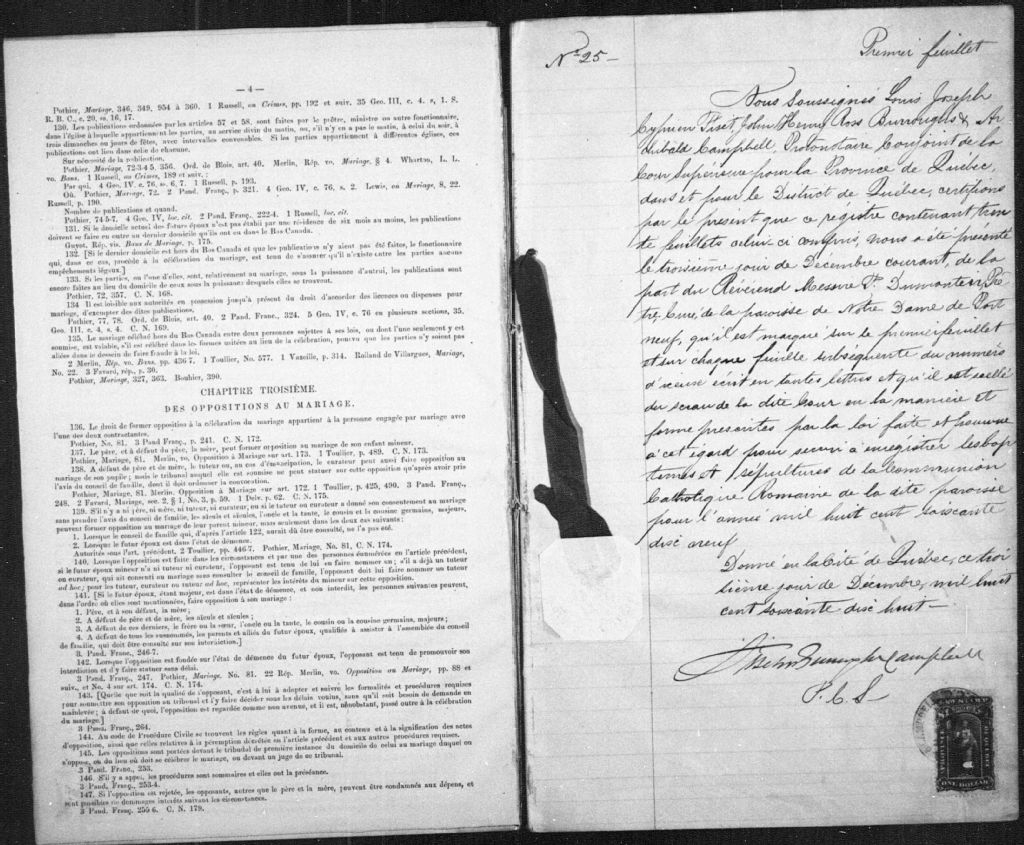 — 4 —
Pothier, Mariage, 346, 349, 954 à 360. 1 Russell, on Crimes, pp. 192 et suiv. 35 Geo. III, c. 4. s, 1. S.
R. B. C., c. 20, ss. 16, 17.
130. Les publications ordonnées par les articles 57 et 58, sont faites par le prêtre, ministre ou autre fonctionnaire,
dans l'église à laquelle appartiennent les parties, au service divin du matin, ou, s'il n'y en a pas le matin, à celui du soir, à
trois dimanches ou jours de fêtes, avec intervalles convenables. Si les parties appartiennent à différentes églises, ces
publications ont lieu dans celle de chacune.
Sur nécessité de la publication.
Pothier, Mariage, 72-3-4 5, 356. Ord. de Blois, art. 40. Merlin, Rép. vo. Mariage, § 4. Wharton, L. L.
vo. Bans. 1 Russell, on Crimes, 189 et suiv. :
Par qui. 4 Geo. IV, c. 76, ss. 6, 7. 1 Russell, p. 193.
Où. Pothier, Mariage, 72. 2 Pand. Franç., p. 321. 4 Geo. IV, c. 76, s. 2. Lewis, on Meriage, 8, 22.
Russell, p. 190.
Nombre de publications et quand.
Pothier, 74 5-7. 4 Geo. IV, loc. cit. 2 Pand. Franç., 222-4. 1 Russell, loc. cit.
131. Si le domicile actuel des futurs époux n'est pas établi par une résidence de six mois au moins, les publications
doivent se faire en outre au dernier domicile qu'ils ont eu dans le Bas Canada.
Guyot, Rép. vis. Bans de Mariage, p. 175.
132. [Si le dernier domicile est hors du Bas Canada et que les publications n'y aient pas été faites, le fonctionnaire
qui, dans ce cas, procède à la célébration du mariage, est tenu de s'assurer qu'il n'existe entre les parties aucuns
empêchements légaux.]
133. Si les parties, ou l'une d'elles, sont, relativement au mariage, sous la puissance d'autrui, les publications sont
encore faites au lieu du domicile de ceux sous la puissance desquels elles se trouvent.
Pothier, 72, 357, C. N. 168.
134 Il est loisible aux autorités en possession jusqu'à présent du droit d'accorder des licences ou dispenses pour
mariage, d'exempter des dites publications.
Pothier, 77, 78. Ord. de Blois, art. 40, 2 Pand. Franç., 324. 5 Geo. IV, c. 76 en plusieurs sections, 35.
Geo. III, c. 4, s. 4. C. N. 169.
135. Le mariage célébré hors du Bas Canada entre deux personnes sujettes à ses lois, ou dont l'une seulement y est
soumise, est valable, s'il est célébré dans les formes usitées au lieu de la célébration, pourvu que les parties n'y soient pas
allées dans le dessein de faire fraude à la loi.
2 Merlin, Rép. vo. Bans, pp. 436 7. 1 Toullier, No. 577. 1 Vazeille, p. 314. Rolland de Villargues, Mariage,
No. 22. 3 Favard, rép., p. 30.
Pothier, Mariage, 327, 363. Bouhier, 390.
CHAPITRE TROISIÈME.
DES OPPOSITIONS AU MARIAGE.
136. Le droit de former opposition à la célébration du mariage appartient à la personne engagée par mariage avec
l'une des deux contractantes.
Pothier, No. 81. 3 Pand Franç., p. 241. C. N. 172.
137. Le père, et à défaut du père, la mère, peut former opposition au mariage de son enfant mineur.
Pothier, Mariage, 81. Merlin, vo. Opposition à Mariage sur art. 173. 1 Toullier, p. 489. C. N. 173.
138. A défaut de père et de mère, le tuteur, ou, en cas d'émancipation, le curateur peut aussi faire opposition au
mariage de son pupile ; mais le tribunal auquel elle est soumise ne peut statuer sur cette opposition qu'après avoir pris
l'avis du conseil de famille, dont il doit ordonner la convocation.
Pothier, Mariage, 81. Merlin. Opposition à Mariage sur art. 172. 1 Toullier, p. 425, 490. 3 Pand. Franç.,
248. 2 Favard, Mariage, sec. 2, § 1, No. 3, p. 59. 1 Delv. p. 62. C. N. 175.
139. S'il n'y a ni père, ni mère, ni tuteur, ni curateur, ou si le tuteur ou curateur a donné son consentement au mariage
sans prendre l'avis du conseil de famille, les aïeuls et aïeules, l'oncle et la tante, le cousin et la cousine germains, majeurs,
peuvent former opposition au mariage de leur parent mineur, mais seulement dans les deux cas suivants :
1. Lorsque le conseil de famille qui, d'après l'article 122, aurait dû être consulté, ne l'a pas été.
2. Lorsque le futur époux est dans l'état de démence.
Autorités sous l'art. précédent. 2 Toullier, pp. 446-7. Pothier, Mariage, No. 81, C. N. 174.
140. Lorsque l'opposition est faite dans les circonstances et par une des personnes énumérées en l'article précédent,
si le futur époux mineur n'a ni tuteur ni curateur, l'opposant est tenu de lui en faire nommer un ; s'il a déjà un tuteur
ou curateur, qui ait consenti au mariage sans consulter le conseil de famille, l'opposant doit lui faire nommer un tuteur
ad hoc ; pour les tuteur, curateur ou tuteur ad hoc, représenter les intérêts du mineur sur cette opposition.
141. [Si le futur époux, étant majeur, est dans l'état de démence, et non interdit, les personnes suivantes peuvent,
dans l'ordre où elles sont mentionnées, faire opposition à son mariage :
1. Père, et à son défaut, la mère ;
2. A défaut de père et de mère, les aïeuls et aïeules ;
3. A défaut de ces derniers, le frère ou la sœur, l'oncle ou la tante, le cousin ou la cousine germains, majeurs ;
4. A défaut de tous les susnommés, les parents et alliés du futur époux, qualifiés à assister à l'assemblée du conseil
de famille, qui doit être consulté sur son interdiction.]
3. Pand. Franç., 246-7.
142. Lorsque l'opposition est fondée sur l'état de démence du futur époux, l'opposant est tenu de promouvoir son
interdiction et d'y faire statuer sans délai.
3 Pand. Franç., 247. Pothier, Mariage, No. 81. 22 Rép. Merlin, vo. Opposition au Mariage, pp. 88 et
suiv., et No. 4 sur art. 174. C. N. 174.
143. [Quelle que soit la qualité de l'opposant, c'est à lui à adopter et suivre les formalités et procédures requises
pour soumettre son opposition au tribunal et l'y faire décider sous les délais voulus, sans qu'il soit besoin de demande en
mainlevée ; à défaut de quoi, l'opposition est regardée comme non avenue, et il est, nonobstant, passé outre à la célébration
du mariage.]
3 Pand. Franç., 264.
144. Au code de Procédure Civile se trouvent les règles quant à la forme, au contenu et à la signification des actes
d'opposition, ainsi que celles relatives à la péremption décrétée en l'article précédent et aux autres procédures requises.
145. Les oppositions sont portées devant le tribunal de première instance du domicile de celui au mariage duquel on
s'oppose, ou du lieu où doit se célébrer le mariage, ou devant un juge de ce tribunal.
3 Pand. Franc., 253.
146. S'il y a appel, les procédures sont sommaires et elles ont la préséance.
3 Pand. Franç., 253-4.
147. Si l'opposition est rejetée, les opposants, autres que le père et la mère, peuvent être condamnés aux dépens, et
sont passibles de dommages intérêts suivant les circonstances.
3 Pand. Franç. 255 6. C. N. 179.
No 25 –
Premier feuillet
Nous Soussignés Louis Joseph
Cyprien Fiset, John Henry Ross Burroughs & Ar
chibald Campbell, Protonotaire Conjoint de la
Cour Supérieure pour la Province de Québec,
dans et pour le District de Québec, certifions
par le présent que ce régistre contenant tren
te feuillets celui ci compris, nous a été présenté
le troisième jour de Décembre courant, de la
part du Révérend Messire Pr. Dumontier, Prê
tre, Curé, de la paroisse de Notre Dame de Port
neuf, qu'il est marqué sur le premier feuillet
et sur chaque feuille subséquente du numéro
d'iceux écrit en toutes lettres et qu'il est scellé
du sceau de la dite Cour en la manière et
forme prescrites par la loi faite et pourvue
à cet égard pour servir à enregistrer les bap
têmes et sépultures de la Communion
Catholique Romaine de la dite paroisse
pour l'année mil huit cent soixante
dix neuf.
Donné en la Cité de Québec, ce troi
sième jour de Décembre, mil huit
cent soixante dix huit –
Fiset Burroughs Campbell
P. C. S
ONE DOLLAR